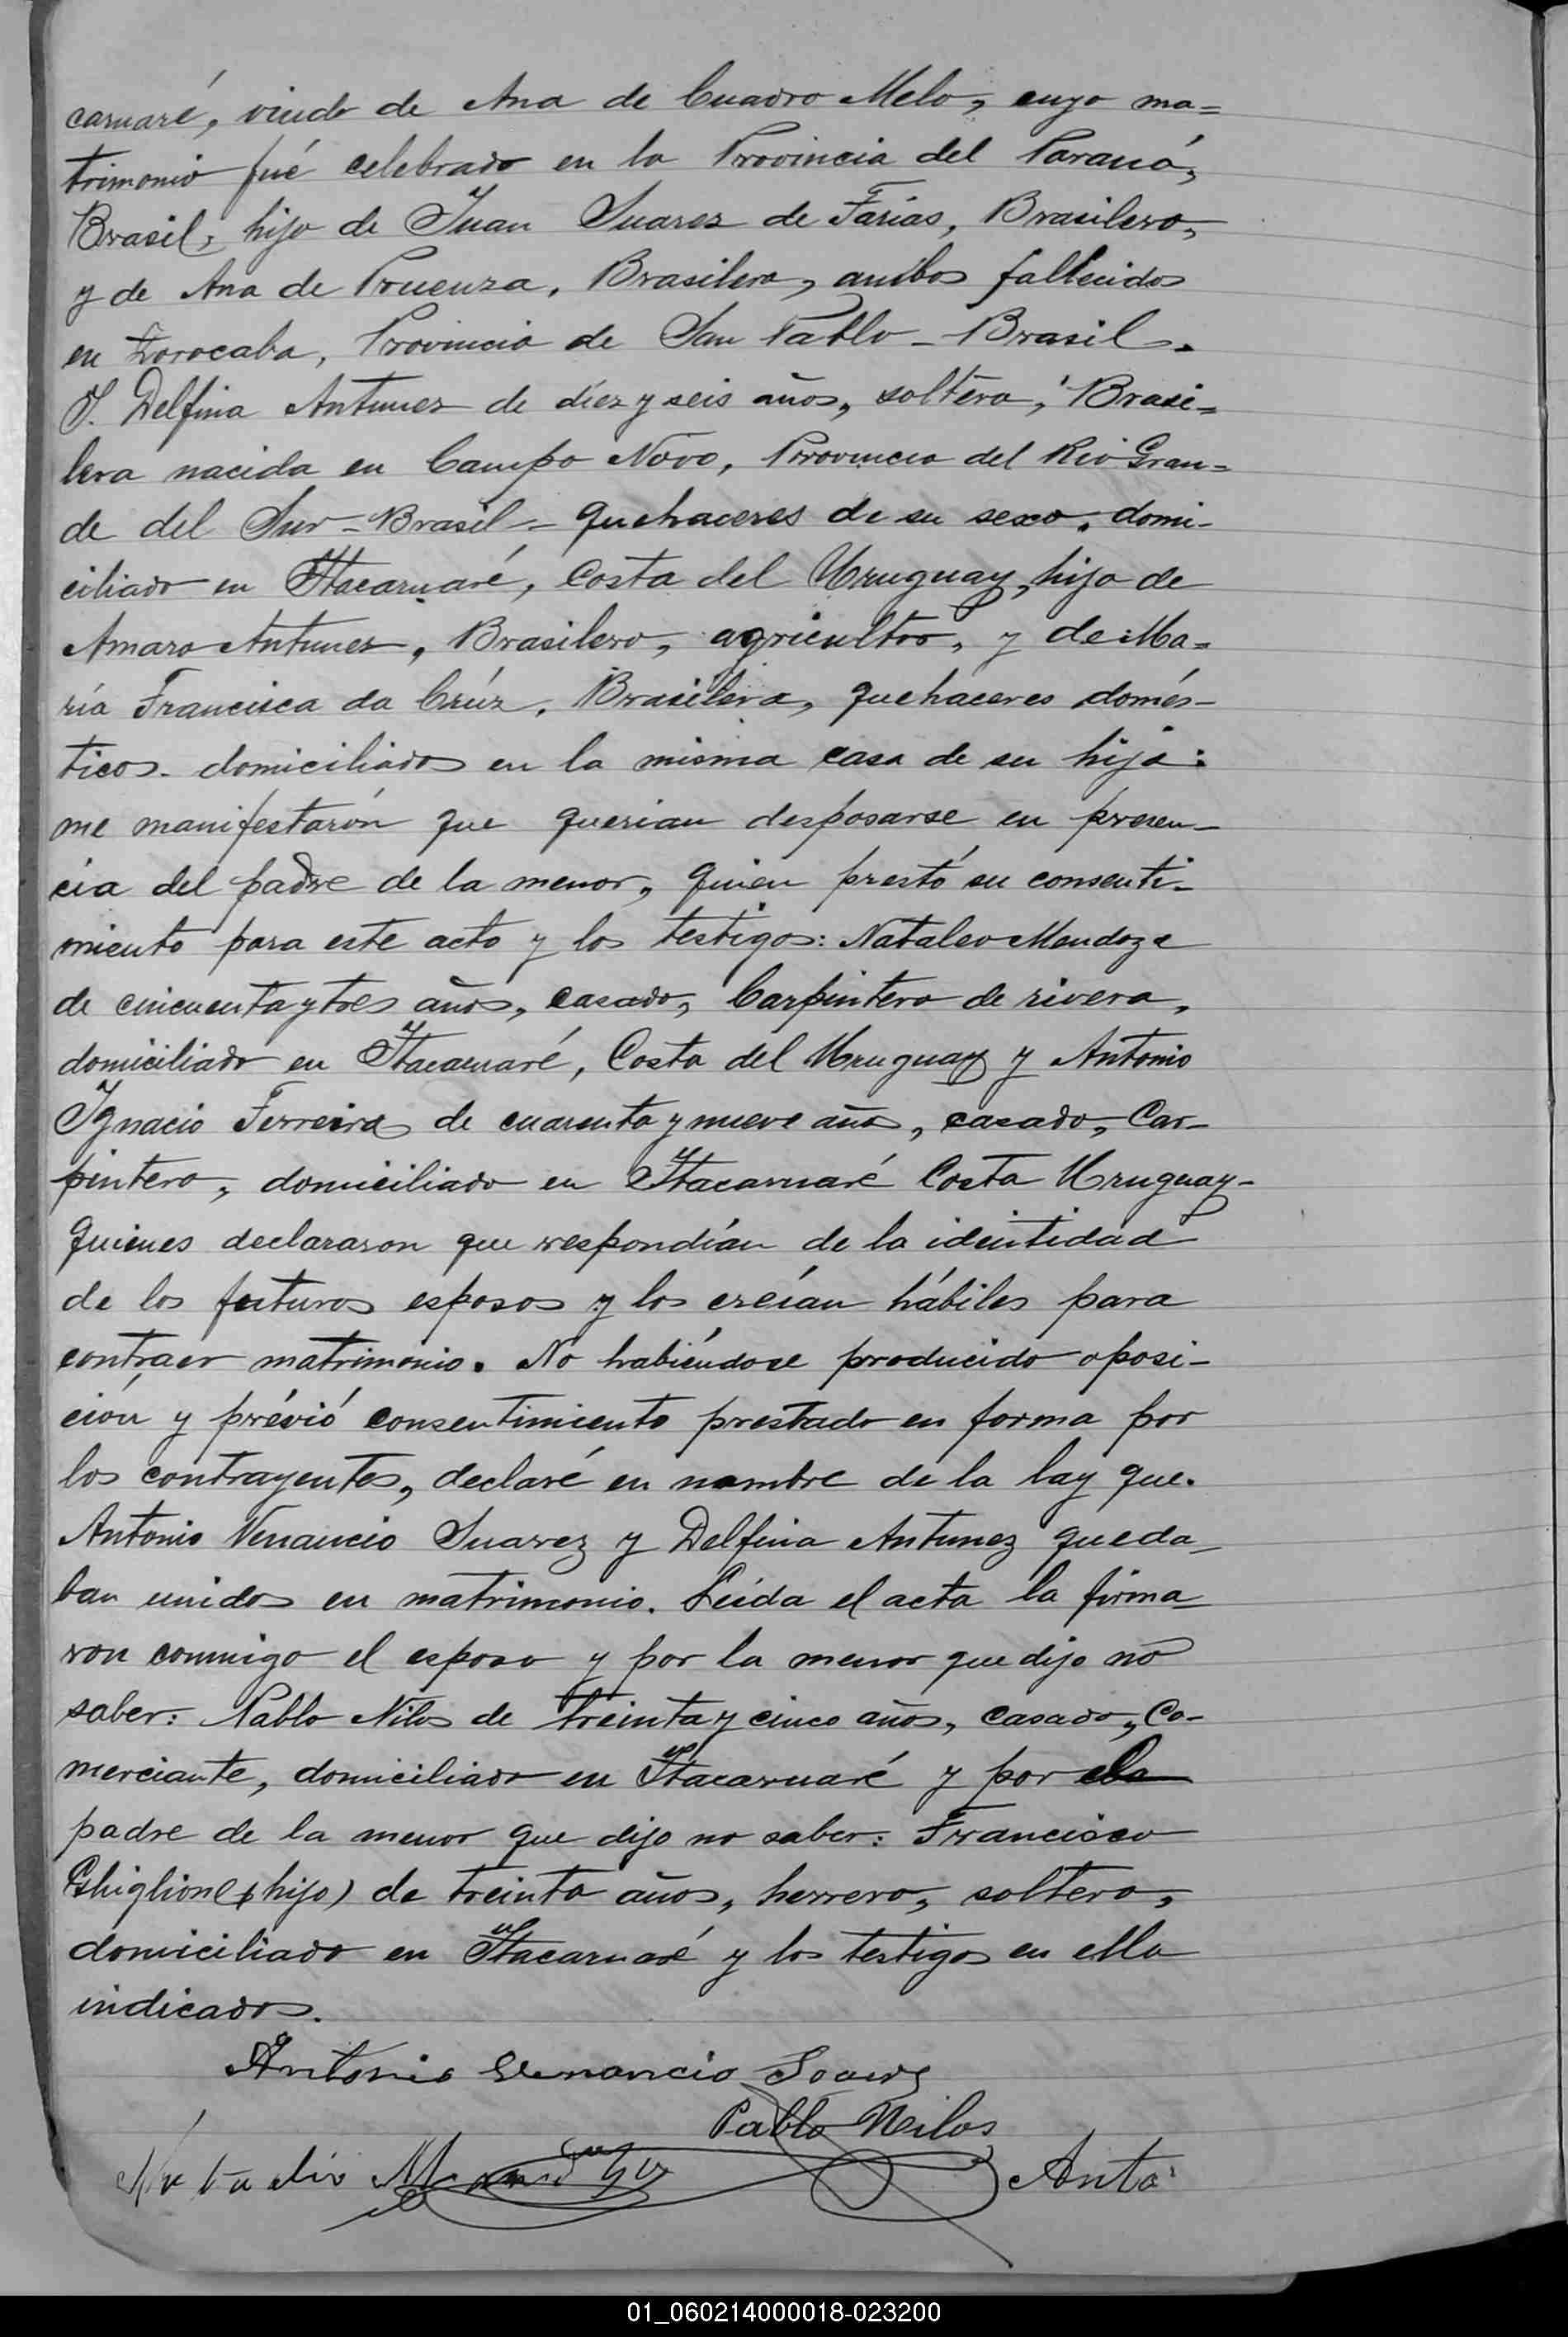 caruaré, viudo de Ana de Cuadro Melo, cuyo ma=
trimonio fué celebrado en la Provincia del Paraná,
Brasil, hijo de Juan Suares de Farías, Brasilero,
y de Ana de Pruenza, Brasilera, ambos fallecidos
en Zorocaba, Provincia de San Pablo - Brasil.
Y. Delfina Antunez de diez y seis años, soltera, Brasi=
lera nacida en Campo Novo, Provincia del Rio Gran=
de del Sur - Brasil - quehaceres de su sexo, domi-
ciliado en Itacaruaré, Costa del Uruguay, hija de
Amaro Antunez, Brasilero, agricultor, y de Ma=
ría Francisca da Crúz, Brasilera, quehaceres domés-
ticos. domiciliados en la misma casa de su hija:
me manifestarón que querian desposarse en presen-
cia del padre de la menor, quien prestó su consenti-
miento para este acto y los testigos: Nataleo Mendoza
de cincuenta y tres años, casado, Carpintero de rivera,
domiciliado en Itacaruaré, Costa del Uruguay y Antonio
Ignacio Ferreira de cuarenta y nueve años, casado, Car-
pintero, domiciliado en Itacaruaré Costa Uruguay-
quienes declararon que respondían de la identidad
de los futuros esposos y los creían hábiles para
contraer matrimonio. No habiéndose producido oposi-
ción y prévió consentimiento prestado en forma por
los contrayentes, declaré en nombre de la lay que.
Antonio Venancio Suarez y Delfina Antunez queda-
ban unidos en matrimonio. Leída el acta la firma-
ron conmigo el esposo y por la menor que dijo no
saber: Pablo Nilos de treinta y cinco años, casado, Co-
merciante, domiciliado en Itacaruaré y por el
padre de la menor que dijo no saber: Francisco
Ghiglione (hijo) de treinta años, herrero, soltero,
domiciliado en Itacaruaré y los testigos en ella
indicados.
Antonio Venancio Soares
Pablo Neilos
Natalio Mendoza Anto
01_060214000018-023200